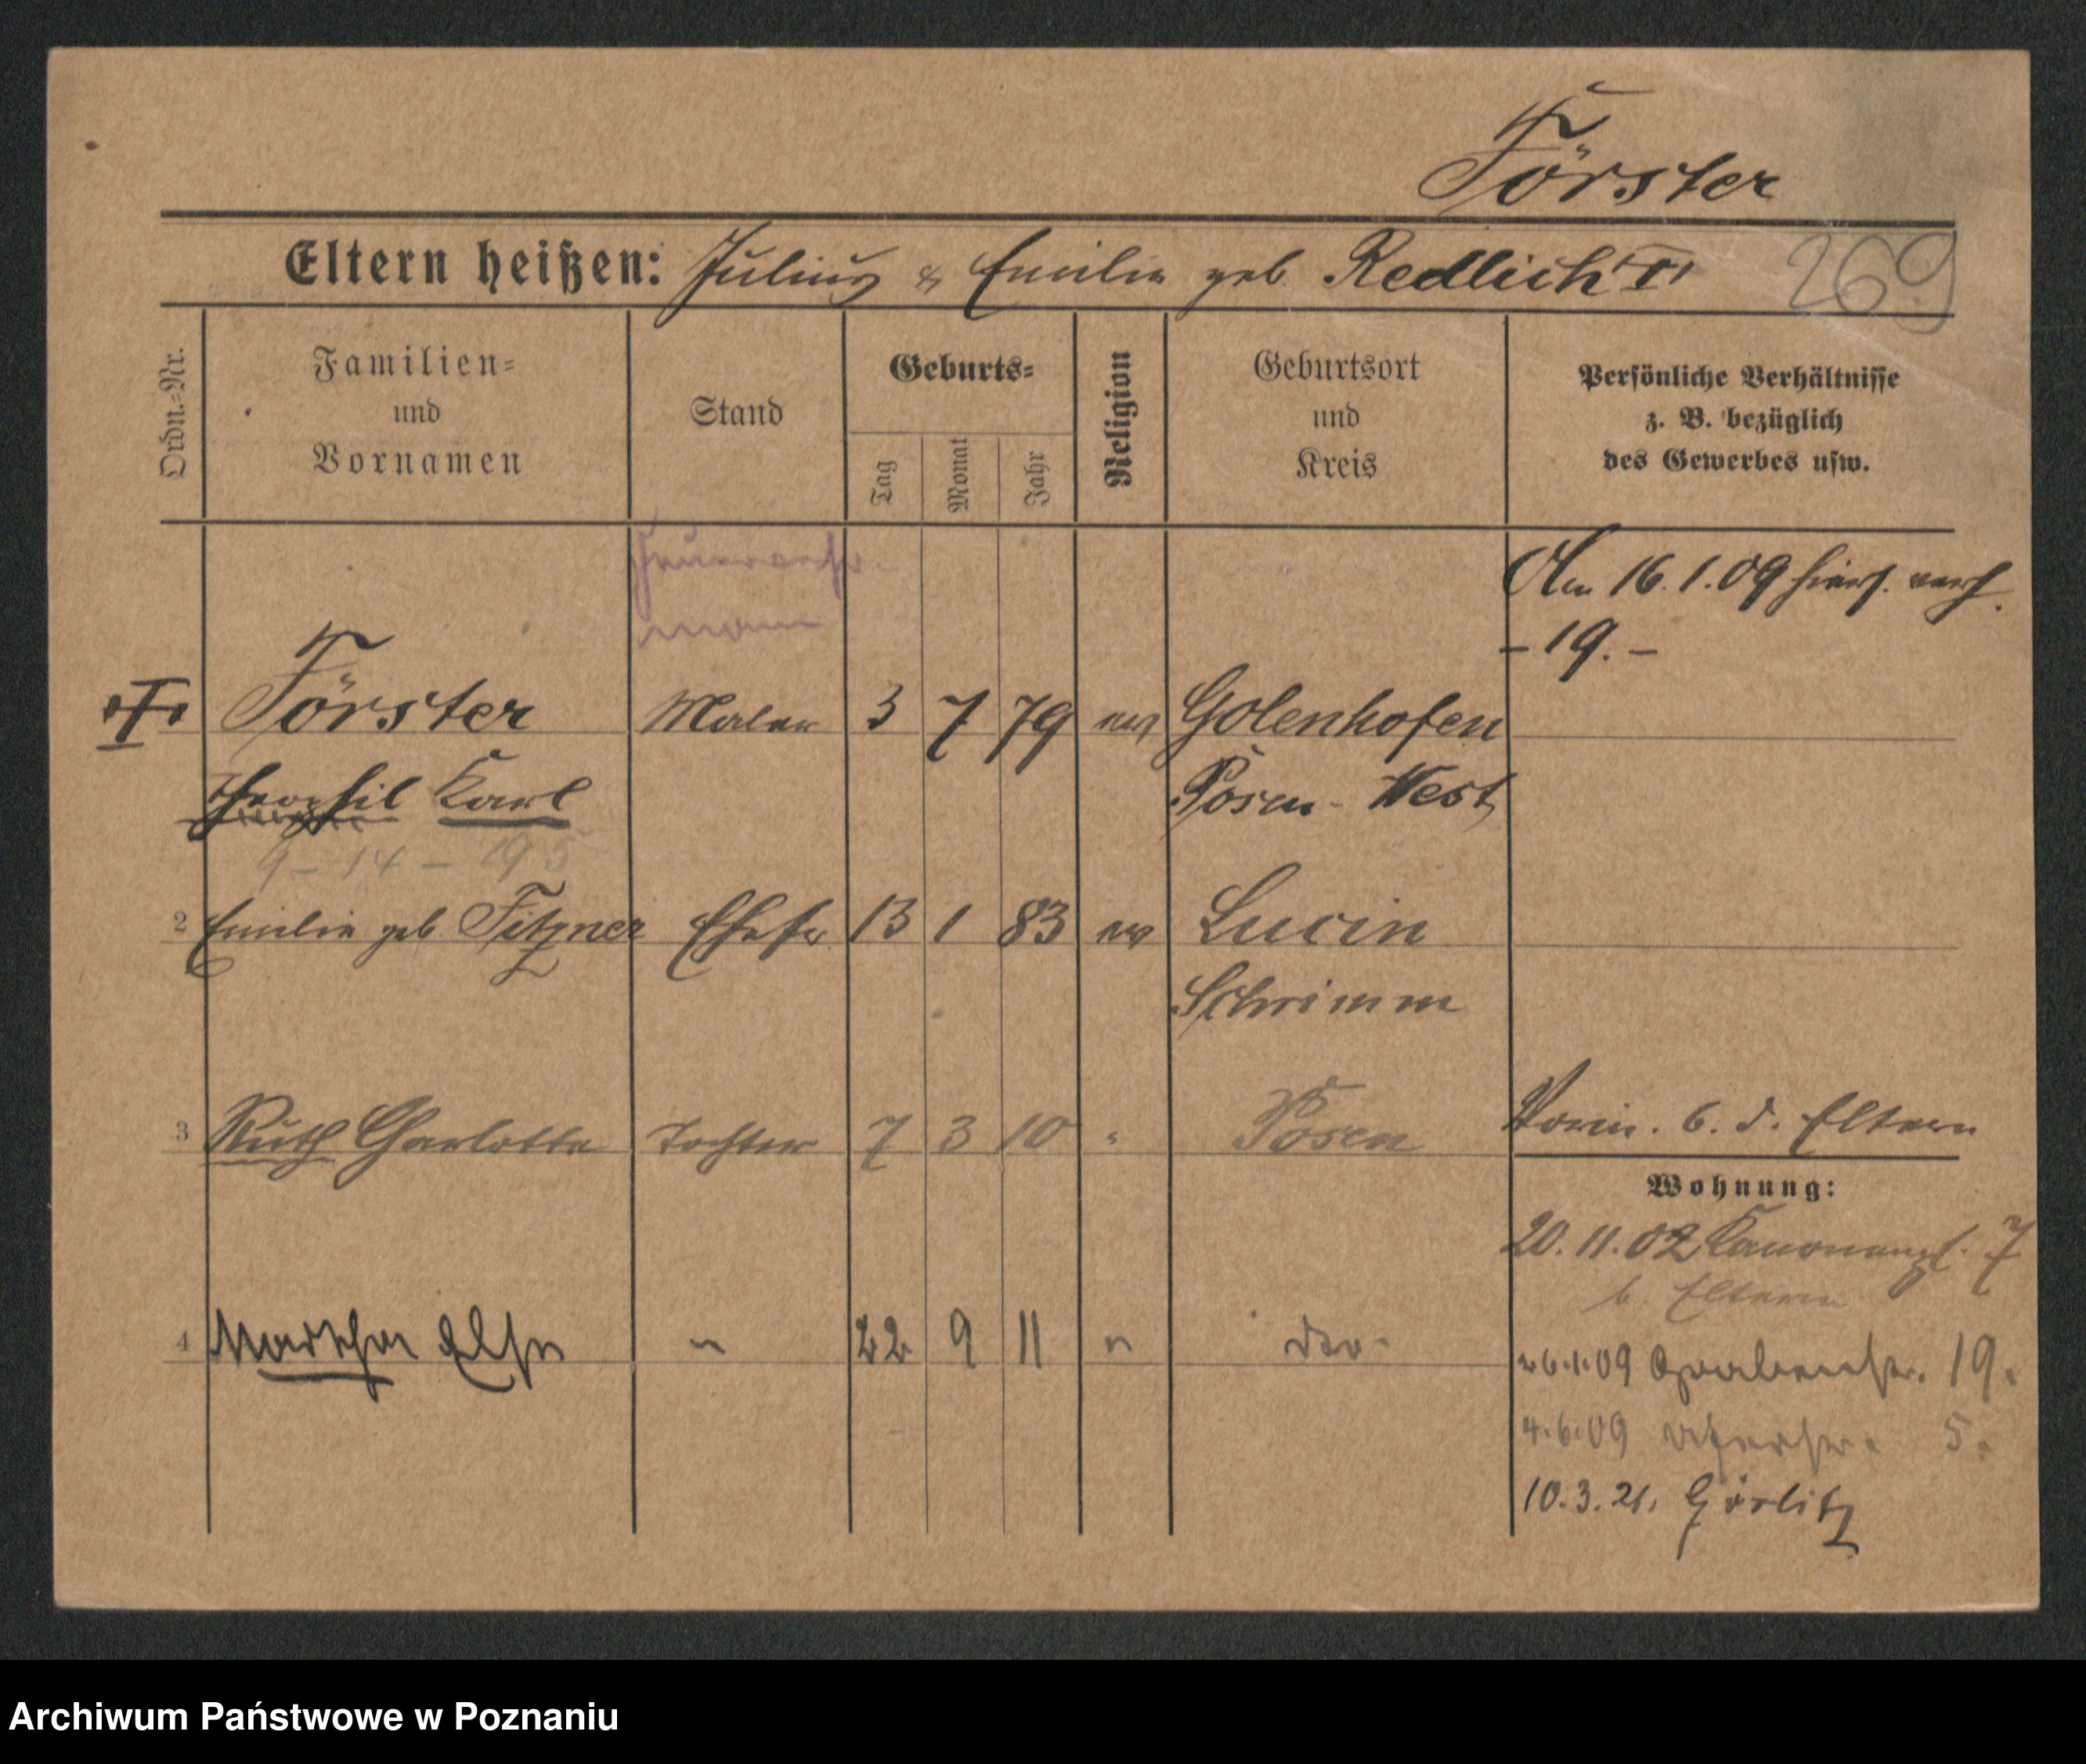 Förster
Eltern heißen: Julius & Emilie geb. Redlich
269
Ordn.-Nr.
Familien-
und
Vornamen
Stand
Geburts-
Tag
Monat
Jahr
Religion
Geburtsort
und
Kreis
Persönliche Verhältnisse
z. B. bezüglich
des Gewerbes usw.
Am 16.1.09 hiers. verh.
- 19. -
Förster Maler 3 7 79 ev Golenhofen
Karl Posen-West
2 Emilie geb Fitzner Ehefr. 13 1 83 ev Lucin
Schrimm
3 Ruth Charlotte Tochter 7 3 10 " Posen
b. d. Eltern
Wohnung:
20.11.02 Kanonenpl. 7
b. Eltern
4 Martha Else " 22 9 11 " dto.
26.1.09 Grabenstr. 19.
4.6.09 5.
10.3.21. Görlitz
Archiwum Państwowe w Poznaniu